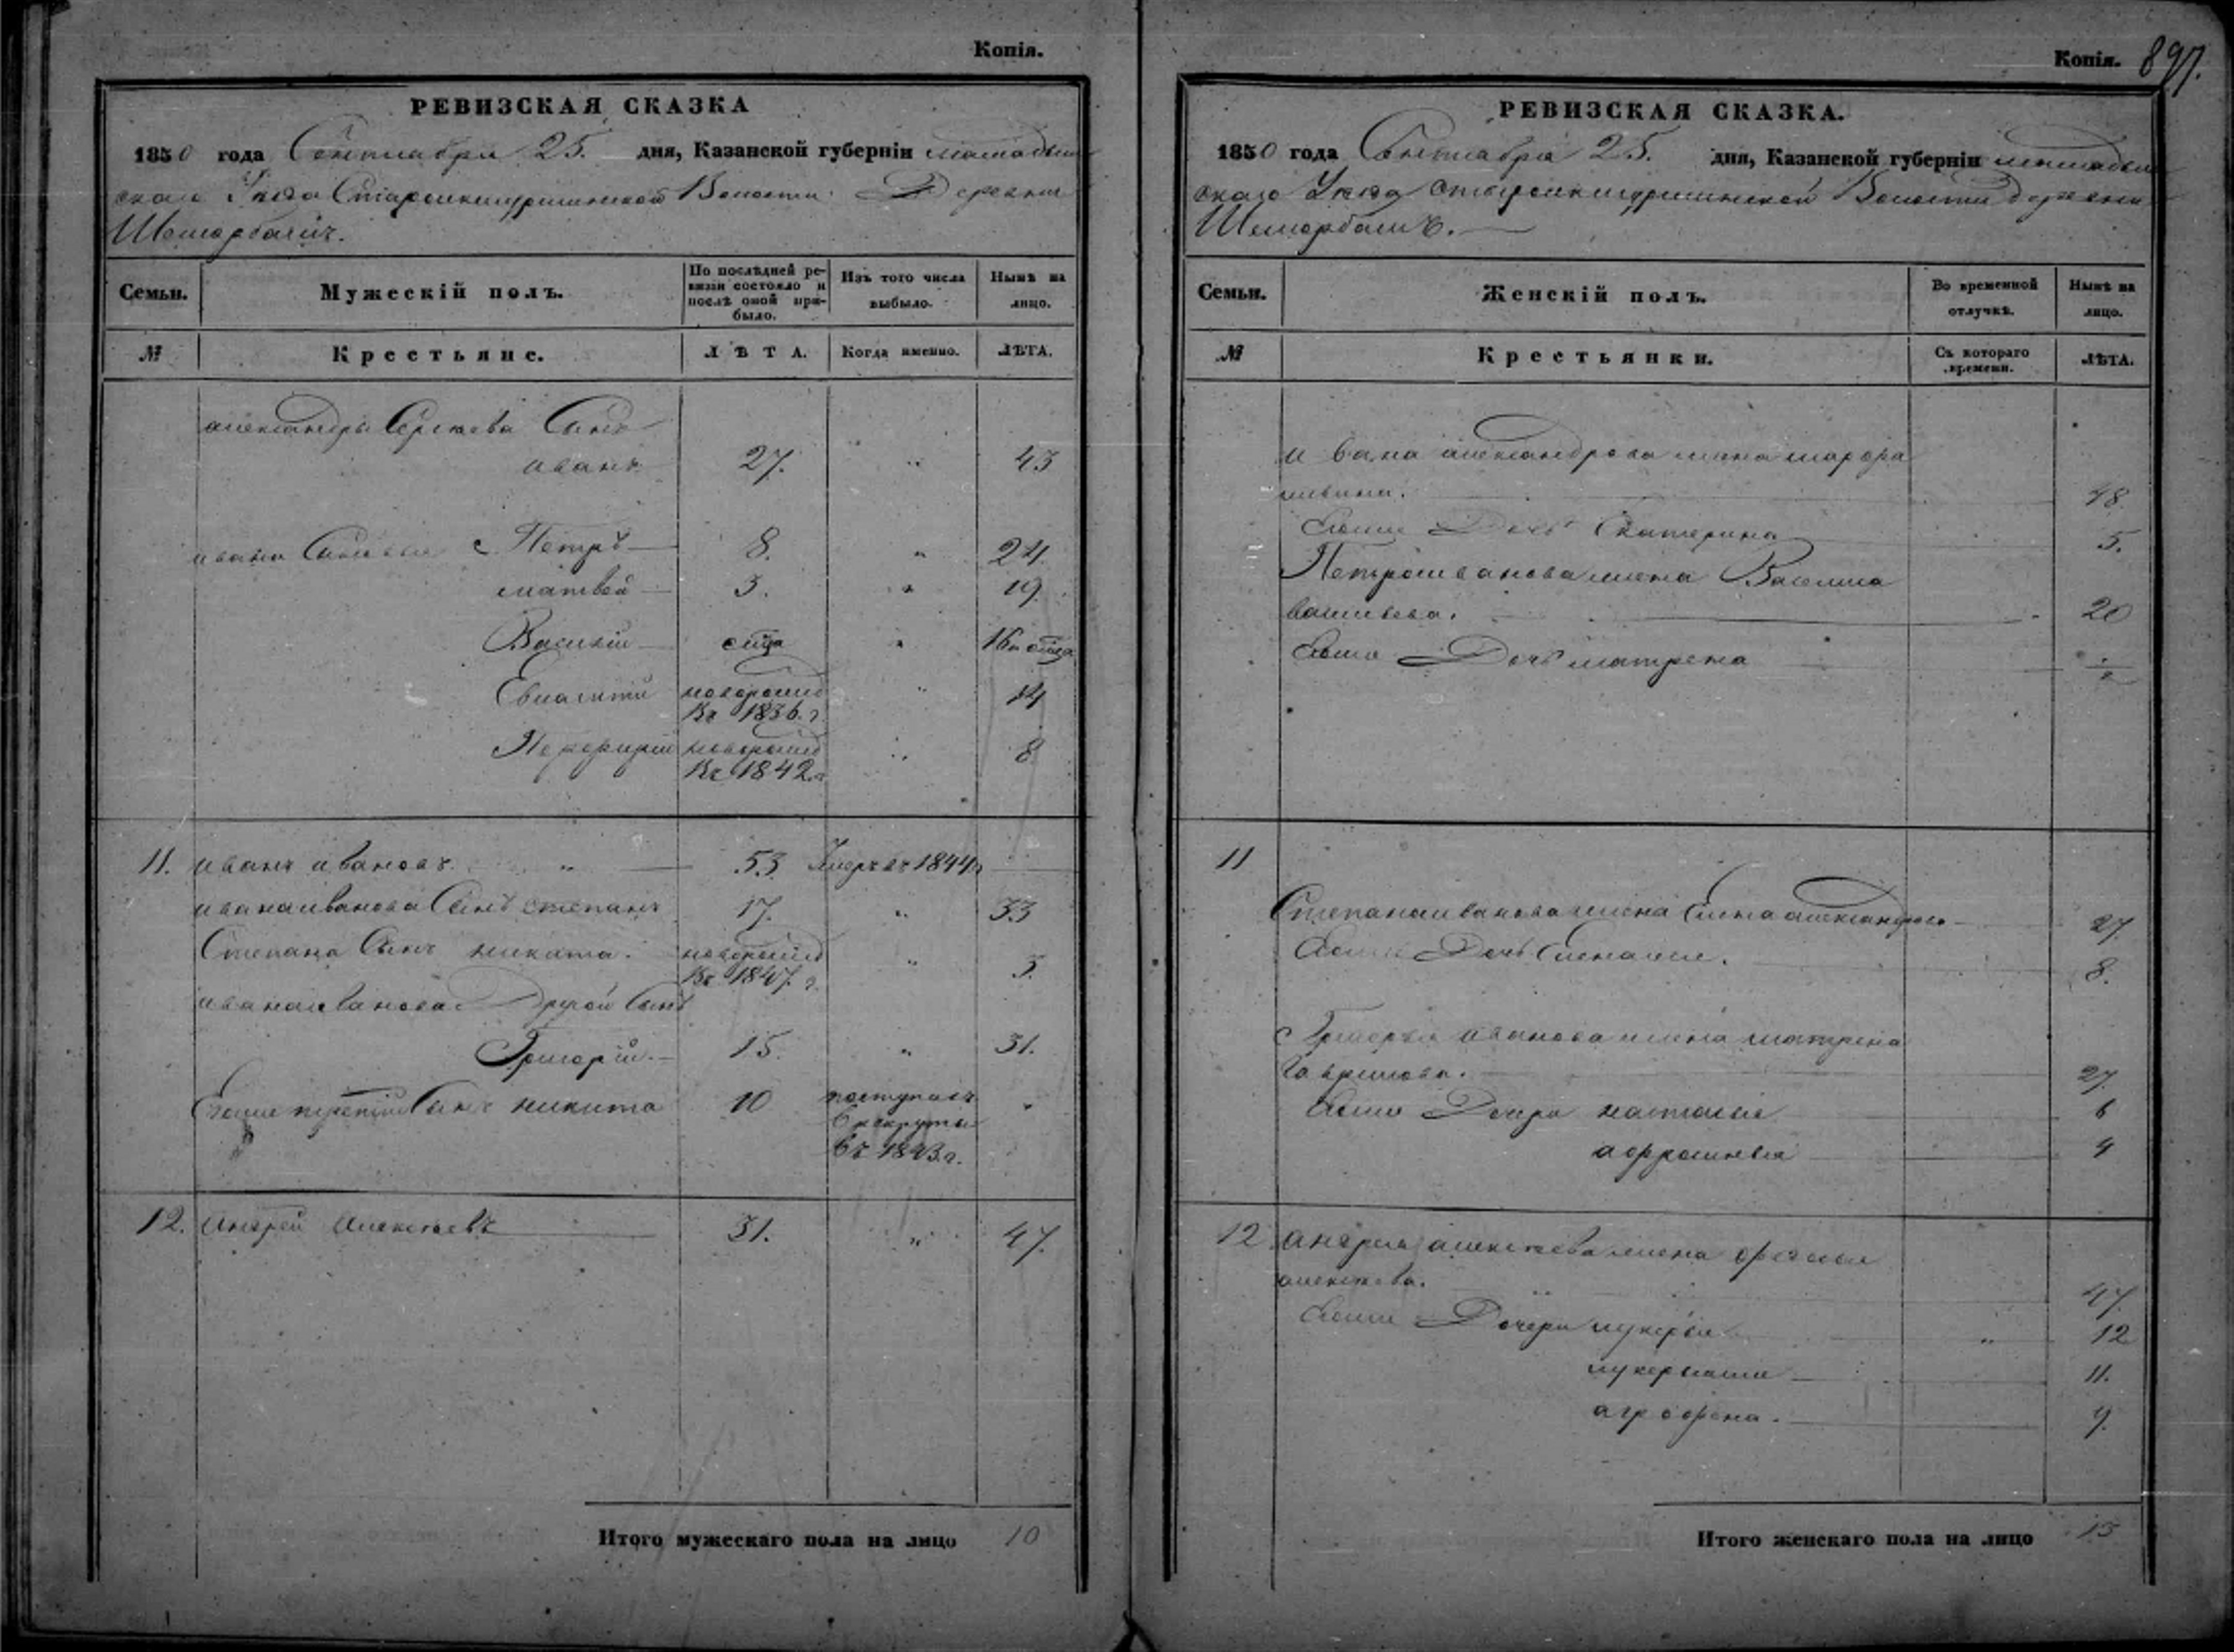 Копія.
РЕВИЗСКАЯ СКАЗКА
1850 года Сентября 25. дня, Казанской губерніи мамадыш
скаго Уезда Староикшурминской Волости Деревни
Шеморбашъ.
Семьи. Мужескій полъ. По послѣдней ре- визіи состояло и послѣ оной при- было. Изъ того числа выбыло. Нынѣ на лицо.
№ Крестьяне. ЛѢТА. Когда именно. ЛѢТА.
александра Сергеева Сынъ
иванъ 27. " 43
ивана Сыновья Петръ 8. " 24
матвей 3. " 19.
Василій " 16
новорожд 14
Въ 1836. г.
Перфирій новорожд 8
Въ 1842 г.
11. иванъ ивановъ " 53 Умеръ въ 1844 г
ивана иванова Сынъ степанъ 17. " 33
Степана Сынъ никита. новорожд " 3.
Въ 1847. г.
ивана иванова Другой Сынъ
Григорій 15. " 31.
Егоже третій Сынъ никита 10 поступилъ "
в рекруты
Въ 1843. г.
12. андрей алексеевъ 31. " 47.
Итого мужескаго пола на лицо 10
Копія. 897.
РЕВИЗСКАЯ СКАЗКА.
1850 года Сентября 25. дня, Казанской губерніи мамадыш
скаго Уезда староикшурминской Волости деревни
Шеморбашъ.
Семьи. Женскій полъ. Во временной отлучкѣ. Нынѣ на лицо.
№ Крестьянки. Съ котораго времени. ЛѢТА.
ивана александрова жена марфа
48
Егоже Дочь Екатерина 5.
Петра иванова жена Васелиса
васильева. 20
Егоже Дочь матрена
11
Степана иванова жена Елена александрова 27.
Егоже Дочь 8.
Григорья иванова жена матрена
Гаврилова. 27.
Егоже Дочери наталья 6
афросинья 4
12 андрея алексеева жена
алексеева. 47.
Егоже Дочери лукерья " 12
11.
аграфена. 9.
Итого женскаго пола на лицо 13